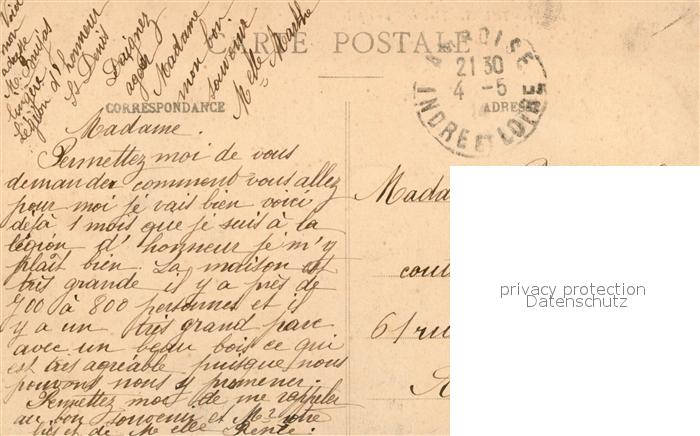 Voici
mon
adresse
Mlle Doujas
lingère
Légion d'honneur
St Denis
Daignez
agréer
Madame
mon bon
souvenir
Melle Marthe
CARTE POSTALE
AMBOISE
21 30
4 -5
INDRE ET LOIRE
CORRESPONDANCE
ADRESSE
Madame.
Permettez moi de vous
demander comment vous allez
pour moi je vais bien voici
déjà 1 mois que je suis à la
légion d'honneur je m'y
plaît bien. La maison est
très grande il y a près de
700 à 800 personnes et il
y a un très grand parc
avec un beau bois ce qui
est très agréable puisque nous
pouvons nous y promener.
Permettez moi de me rappeler
au bon souvenir et Mr votre
et de Melle Renée.
Mada
cout
61 ru
privacy protection
Datenschutz